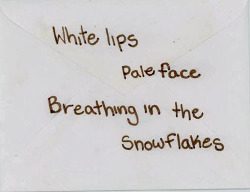 White lips
Pale face
Breathing in the
Snowflakes